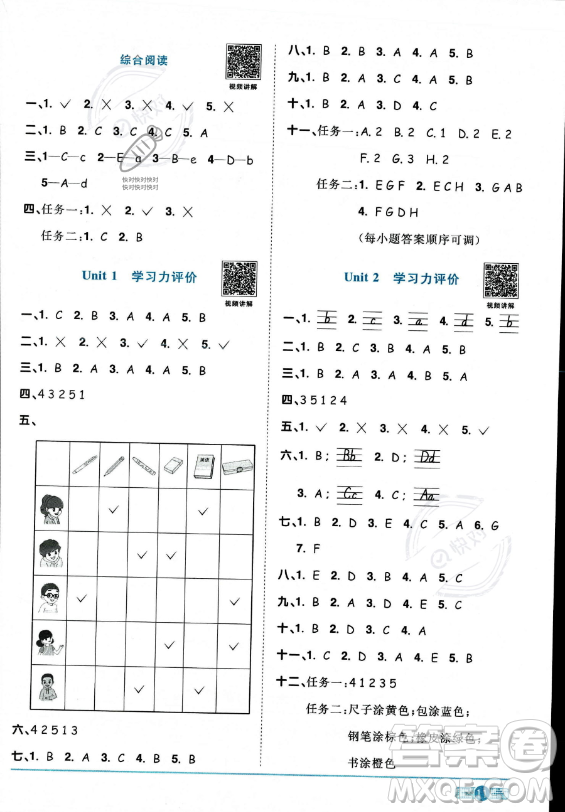 综合阅读
视频讲解
一、1. ✓ 2. ✕ 3. ✕ 4. ✓ 5. ✕
二、1. B 2. C 3. C 4. C 5. A
三、1—C—c 2—E—a 3—B—e 4—D—b
5—A—d
快对快对快对
快对快对快对
四、任务一:1. ✕ 2. ✓ 3. ✕
任务二:1. C 2. B
Unit 1 学习力评价
视频讲解
一、1. C 2. B 3. A 4. A 5. B
二、1. ✕ 2. ✓ 3. ✕ 4. ✓ 5. ✓
三、1. B 2. B 3. A 4. A 5. B
四、4 3 2 5 1
五、
英语
✓
✓
✓
✓
✓
六、4 2 5 1 3
七、1. B 2. A 3. B 4. B 5. A
八、1. B 2. B 3. A 4. A 5. B
九、1. B 2. C 3. A 4. C 5. B
十、1. C 2. A 3. A 4. B 5. B
十一、任务一:A. 2 B. 2 C. 1 E. 2
F. 2 G. 1 H. 1
任务二:1. E G F 2. E C H 3. G A B
4. F G D H
(每小题答案顺序可调)
Unit 2 学习力评价
视频讲解
一、1. b 2. c 3. a 4. d 5. b
二、1. B 2. C 3. A 4. A 5. B
三、1. B 2. A 3. A 4. B 5. A
四、3 5 1 2 4
五、1. ✓ 2. ✕ 3. ✕ 4. ✕ 5. ✓
六、1. B; Bb 2. D; Dd
3. A; Cc 4. C; Aa
七、1. B 2. D 3. C 4. E 5. A 6. G
7. F
八、1. E 2. D 3. B 4. A 5. C
九、1. B 2. A 3. B 4. A 5. C
十、1. B 2. A 3. C 4. A
十一、1. D 2. B 3. A 4. E 5. C
十二、任务一:4 1 2 3 5
任务二:尺子涂黄色;包涂蓝色;
钢笔涂棕色;橡皮涂绿色;
书涂橙色
1
快对
答案圈